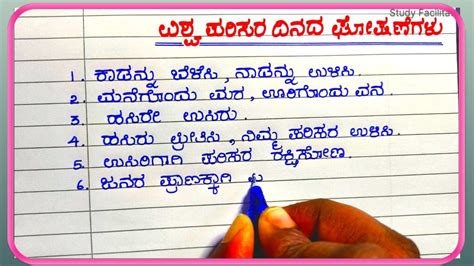 Study Facilita
ವಿಶ್ವ ಪರಿಸರ ದಿನದ ಘೋಷಣೆಗಳು
1. ಕಾಡನ್ನು ಬೆಳೆಸಿ, ನಾಡನ್ನು ಉಳಿಸಿ.
2. ಮನೆಗೊಂದು ಮರ, ಊರಿಗೊಂದು ವನ.
3. ಹಸಿರೇ ಉಸಿರು.
4. ಹಸಿರು ಪ್ರೀತಿಸಿ, ನಿಮ್ಮ ಪರಿಸರ ಉಳಿಸಿ.
5. ಉಸಿರಿಗಾಗಿ ಪರಿಸರ ರಕ್ಷಿಸೋಣ.
6. ಜನರ ಪ್ರಾಣಕ್ಕಾಗಿ